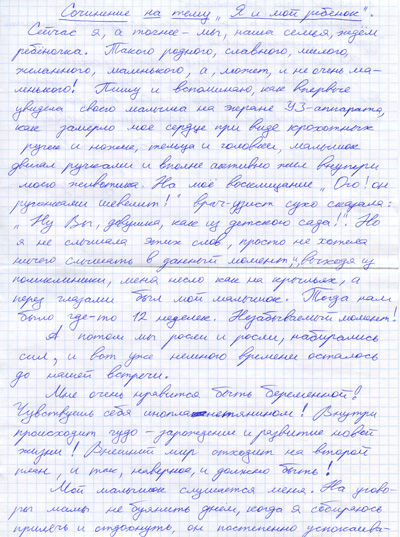 Сочинение на тему „Я и мой ребенок".
Сейчас я, а точнее – мы, наша семья, ждём
ребёночка. Такого родного, славного, милого,
желанного, маленького, а, может, и не очень ма-
ленького! Пишу и вспоминаю, как впервые
увидела своего малыша на экране УЗ-аппарата,
как замерло мое сердце при виде крохотных
ручек и ножек, тельца и головки, малышок
двигал ручками и вполне активно жил внутри
моего животика. На моё восклицание „Ого! он
ручонками шевелит!" врач-узист сухо сказала:
„Ну Вы, девушка, как из детского сада!". Но
я не слышала этих слов, просто не хотела
ничего слышать в данный момент, выходя из
поликлиники, меня несло как на крыльях, а
перед глазами был мой малышок. Тогда нам
было где-то 12 неделек. Незабываемый момент!
А потом мы росли и росли, набирались
сил, и вот уже немного времени осталось
до нашей встречи.
Мне очень нравится быть беременной!
Чувствуешь себя инопланетянином! Внутри
происходит чудо – зарождение и развитие новой
жизни! Внешний мир отходит на второй
план, и так, наверное, и должно быть!
Мой малышок слушается меня. На угово-
ры мамы не буянить днем, когда я собираюсь
прилечь и отдохнуть, он постепенно успокаива-